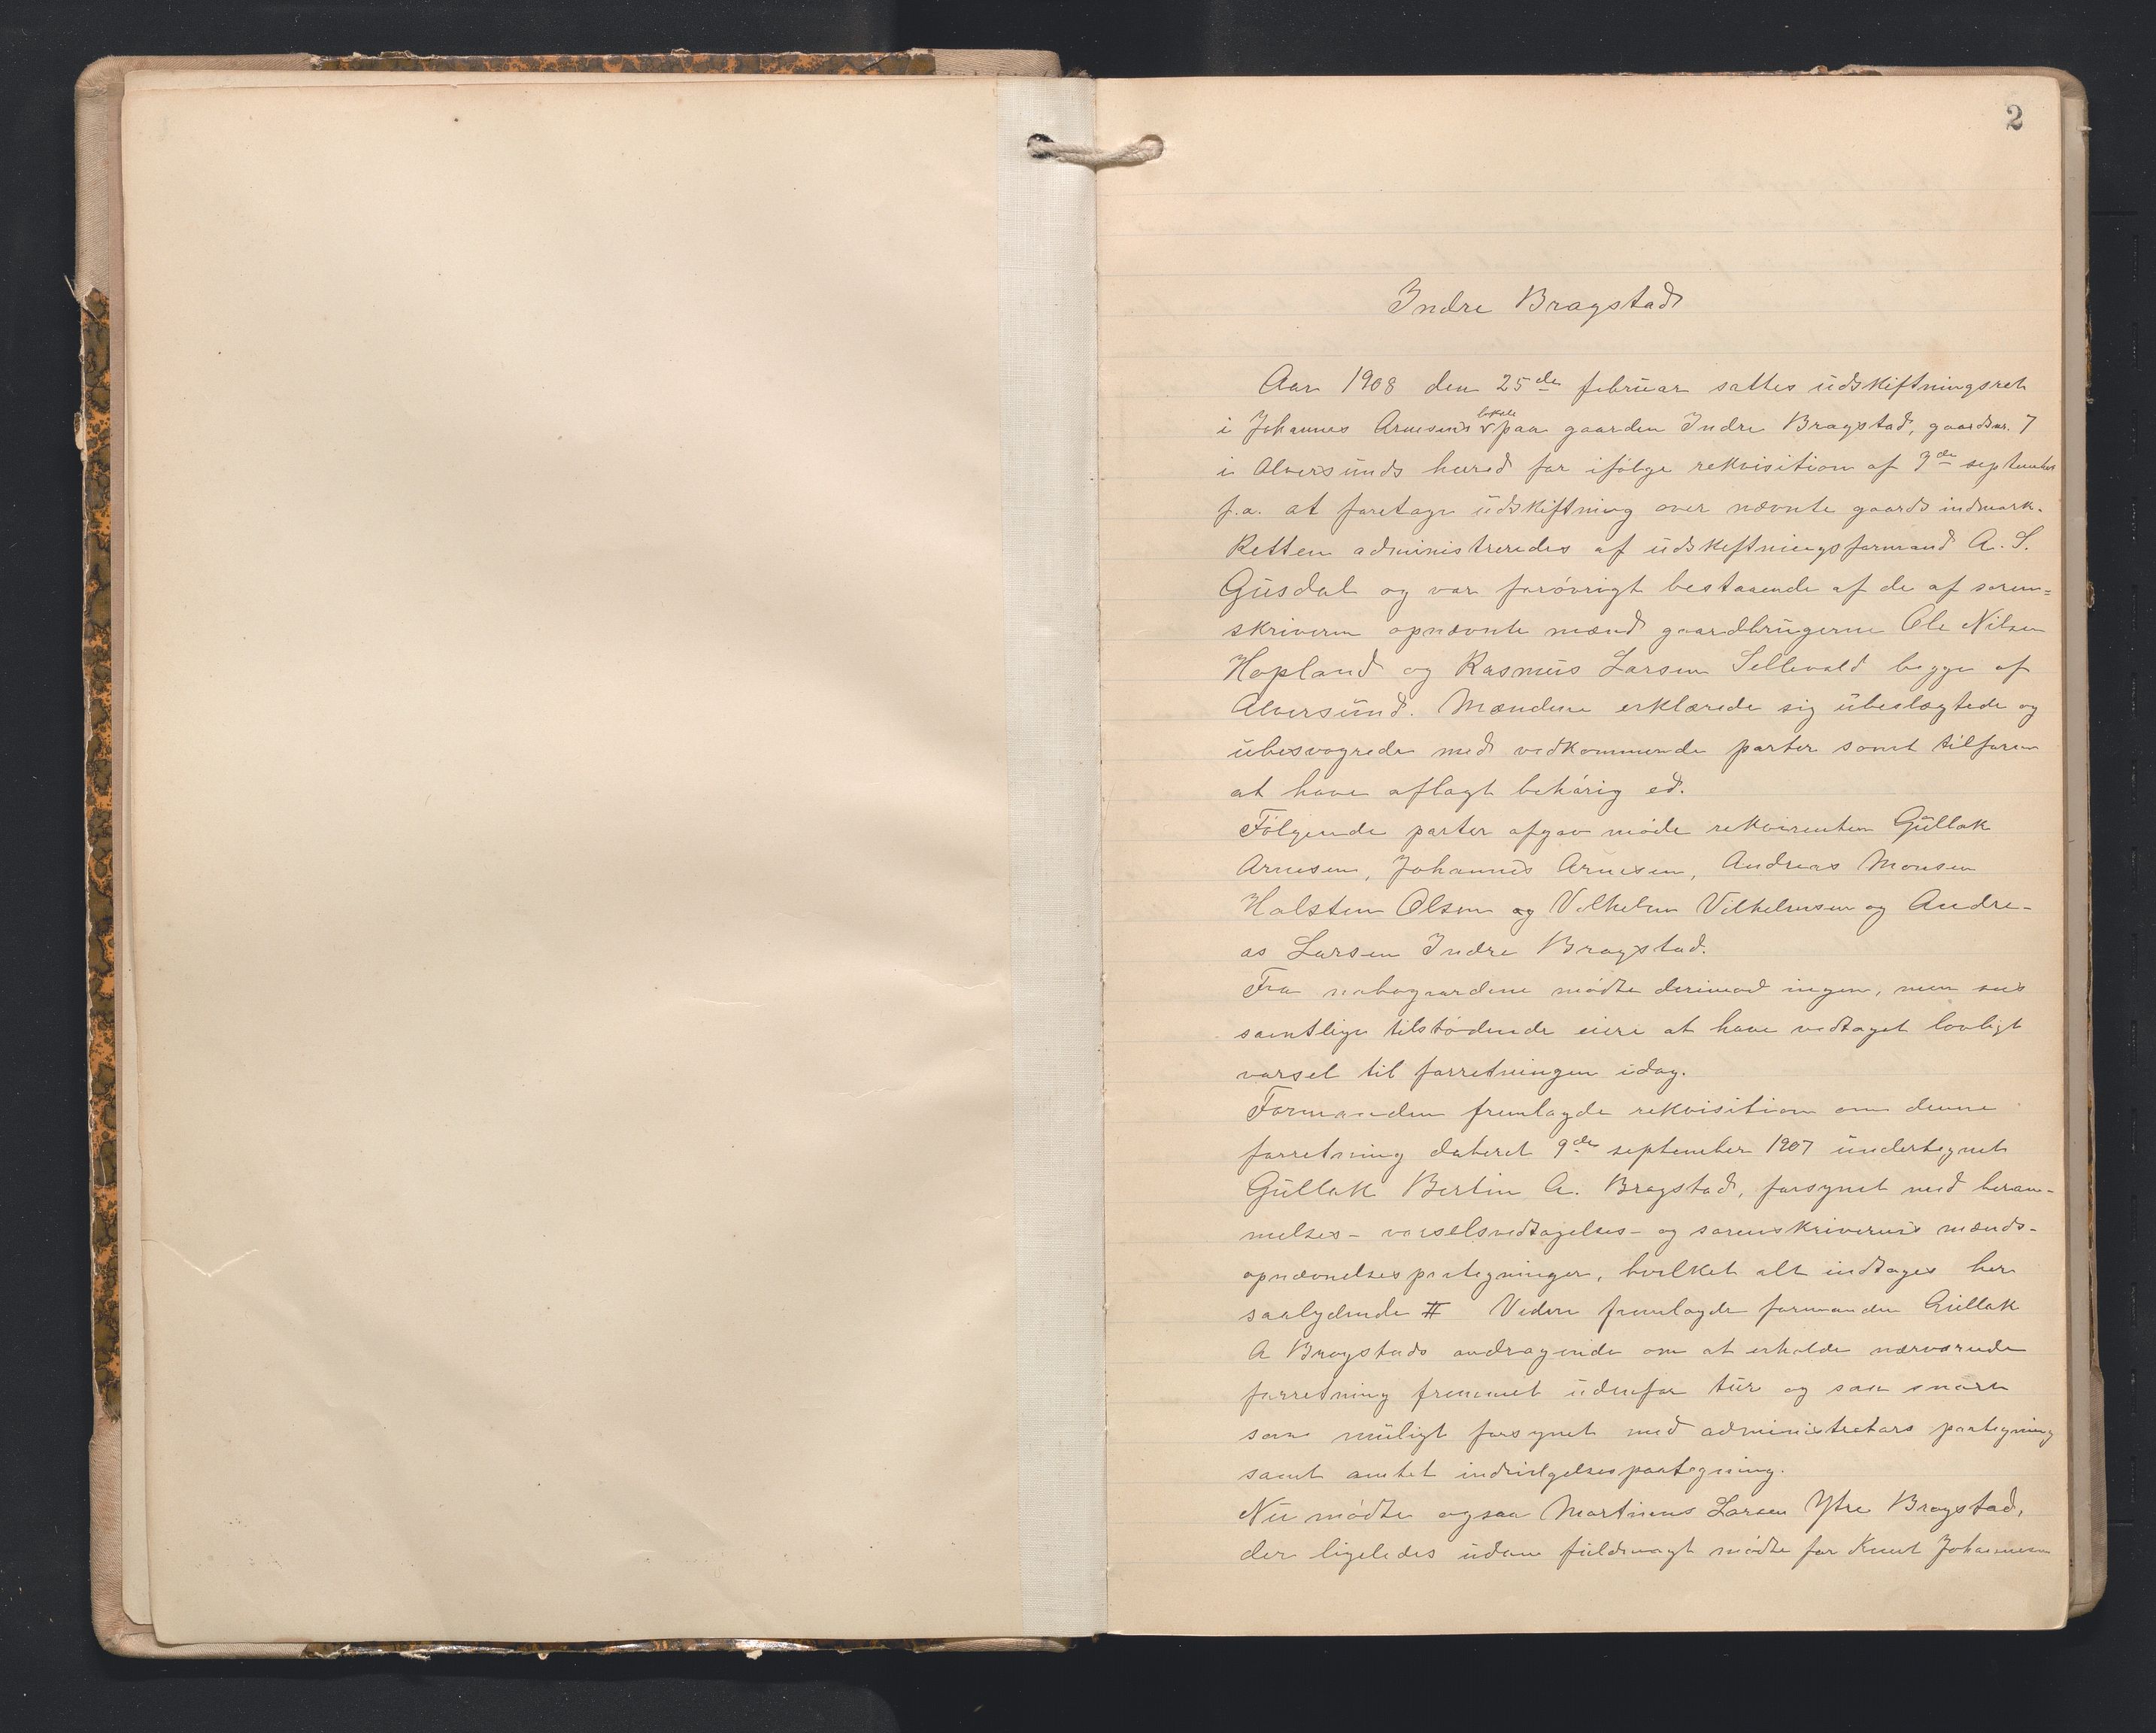 2
Indre Bragstad
Aar 1908 den 25de februar sattes üdskiftningsret
lokale
i Johannes Arnesens paa gaarden Indre Bragstad, gaardsnr. 7
i Alversünds hered for ifølge rekvisition af 9de september
f.a. at foretage üdskiftning over nævnte gaards indmark.
Retten administreredes af üdskiftningsformand A. S.
Güsdal og var forøvrigt bestaaende af de af soren=
skriveren opnævnte mænd gaardbrügerne Ole Nilsen
Hopland og Rasmüs Larsen Sellevold begge af
Alversünd. Mændene erklærede sig übeslægtede og
übesvogrede med vedkommende parter samt tilforen
at have aflagt behørig ed.
Følgende parter afgav møde rekvirenten Güllak
Arnesen, Johannes Arnesen, Andreas Monsen
Halsten Olsen og Vilhelm Vilhelmsen og Andre-
as Larsen Indre Bragstad.
Fra nabogaardene mødte derimod ingen, men sees
samtlige tilstødende eiere at have vedtaget lovligt
varsel til forretningen idag.
Formanden fremlagde rekvisition om denne
forretning dateret 9de september 1907 ündertegnet
Güllak Bertin A. Bragstad, forsynet med beram-
melses- varselsvedtagelses- og sorenskriverens mænds-
opnævnelsespaategninger, hvilket alt indtages her
saalydende # Videre fremlagde formanden Güllak
A Bragstads andragende om at erholde nærværende
forretning fremmet üdenfor tür og saa snart
som müligt forsynet med administrators paategning
samt amtet indvilgelsespaategning.
Nü mødte ogsaa Martinus Larsen Ytre Bragstad,
der ligeledes üden füldmagt mødte for Knut Johannesen